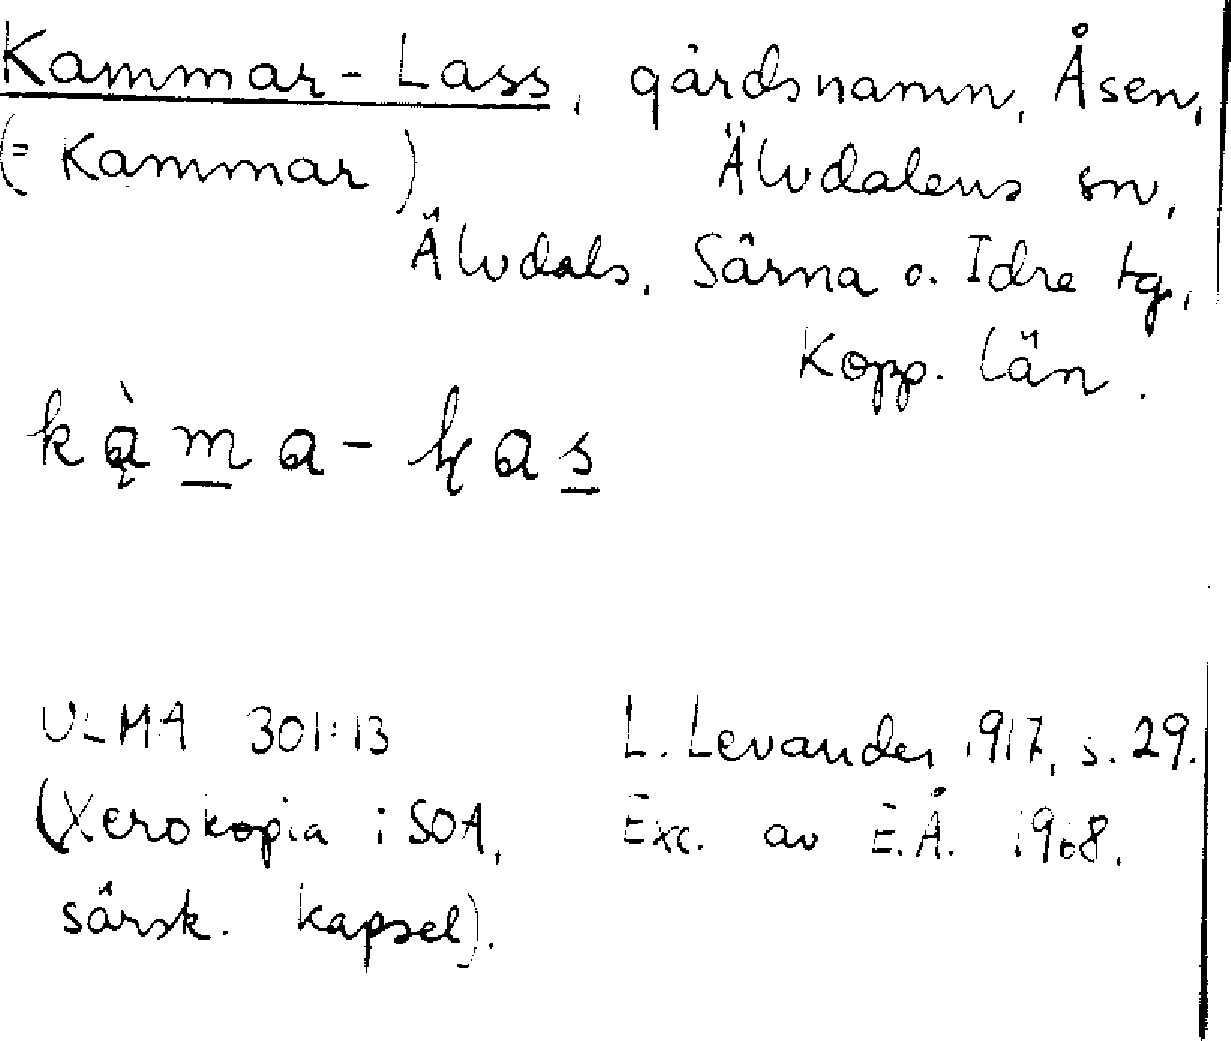 Kammar-Lass, gårdsnamn, Åsen,
(= Kammar) Älvdalens sn,
Älvdals, Särna o. Idre tg,
Kopp. län.
ULMA 301:13 L. Levander 1917, s. 29.
(Xerokopia i SOA, Exc. av E.Å. 1968.
särsk. kapsel).